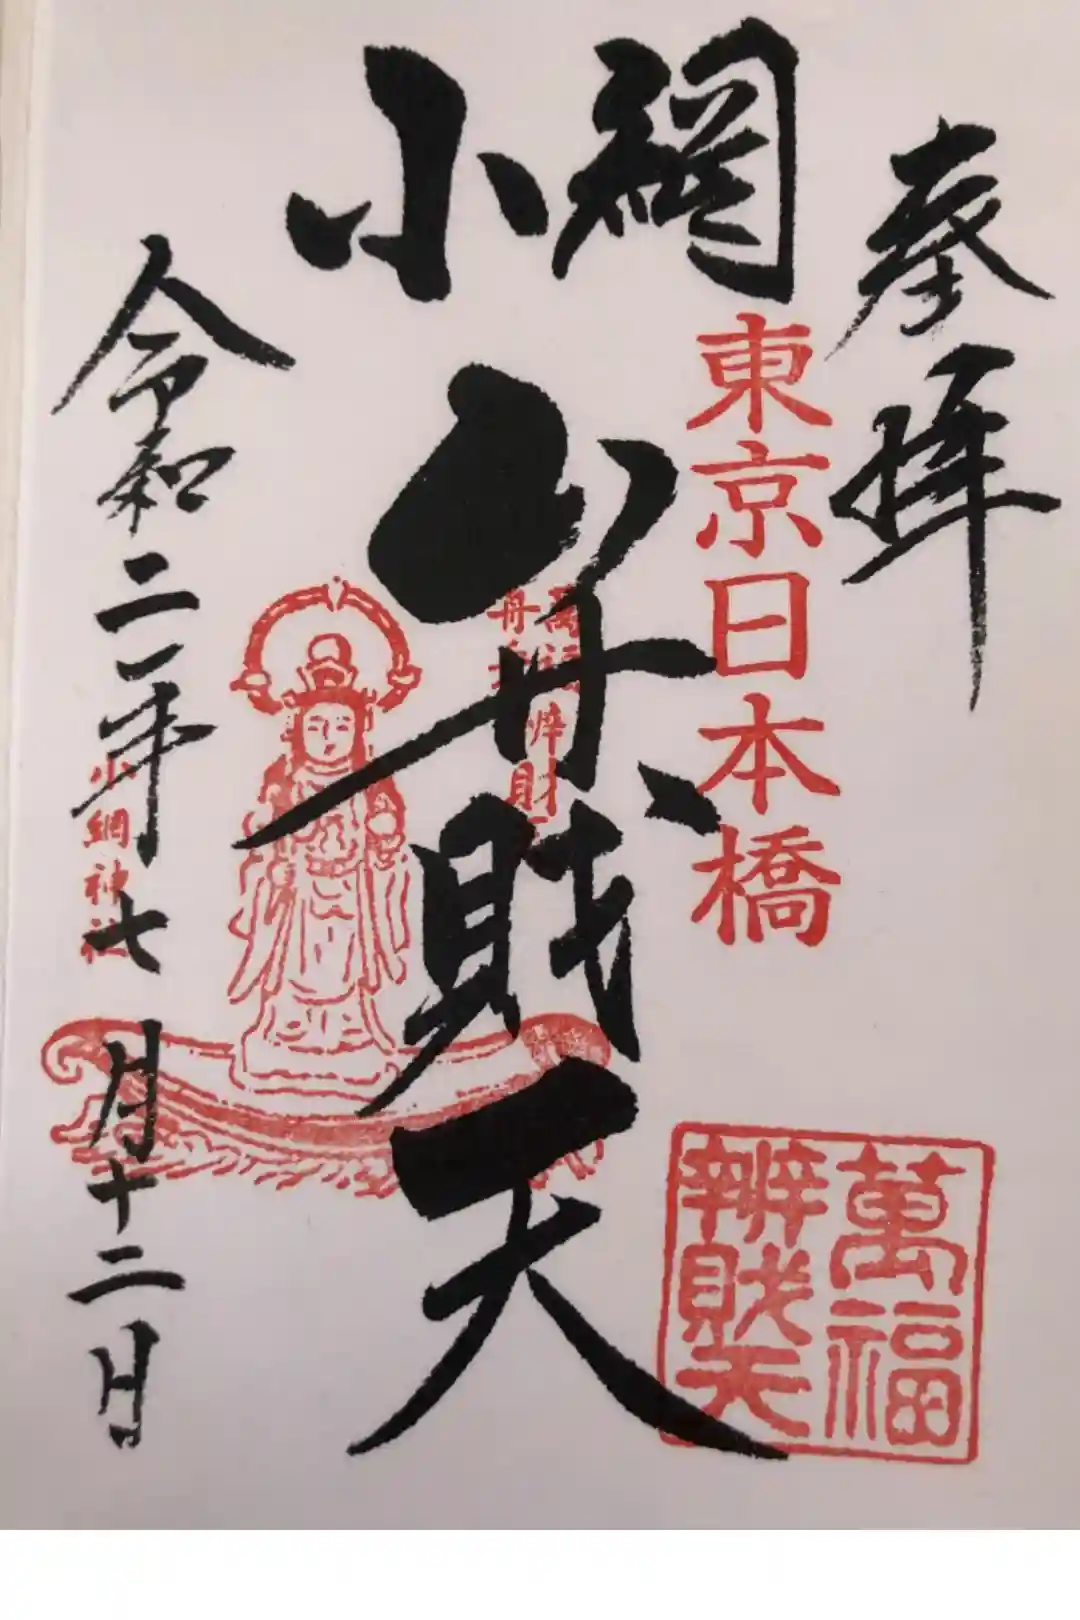 奉拝
東京日本橋
小網
弁財天
萬福
舟乗弁財天
小網神社
令和二年七月十二日
萬福
辨財天